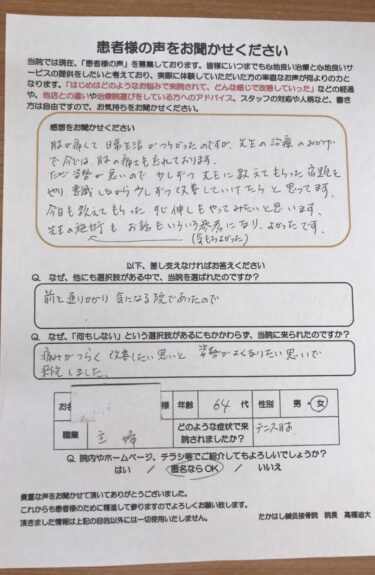 患者様の声をお聞かせください
当院では現在、「患者様の声」を募集しております。皆様にいつまでも心地良い治療と心地良いサ
ービスの提供をしたいと考えており、実際に体験していただいた方の率直なお声が何よりの力と
なります。「はじめはどのようなお悩みで来院されて、どんな感じで改善していった」などの経過
や、他店との違いや治療院選びをしている方へのアドバイス、スタッフの対応や人柄など、書き
方は自由ですので、お気持ちをお聞かせください。
感想をお聞かせください
肘が痛くて日常生活がつらかったのですが、先生の治療のおかげ
で今では、肘の痛みも忘れております。
ただ姿勢が悪いので、少しずつ先生に教えてもらった宿題を
やり、意識しながら少しずつ改善していけたらと思ってます。
今日も教えてもらった 伸しをやってみたいと思います。
先生の施術も お話もいろいろ参考になり、よかったです。
(気もちよかった)
以下、差し支えなければお答えください
Q. なぜ、他にも選択肢がある中で、当院を選ばれたのですか?
前を通りがかり 気になる院であったので
Q. なぜ、「何もしない」という選択肢があるにもかかわらず、当院に来られたのですか?
痛みがつらく 改善したい思いと 姿勢がよくなりたい思いで
来院しました。
お名 様 年齢 64 代 性別 男・女
職業 主婦 どのような症状で来院されましたか? テニス肘
Q. 院内やホームページ、チラシ等でご紹介してもよろしいでしょうか?
はい / 匿名ならOK / いいえ
貴重な声をお聞かせて頂いてありがとうございました。
これからも患者様のために精進して参りますのでよろしくお願い致します。
頂きました情報は上記の目的以外には一切使用いたしません。 たかはし鍼灸接骨院 院長 高橋迪大